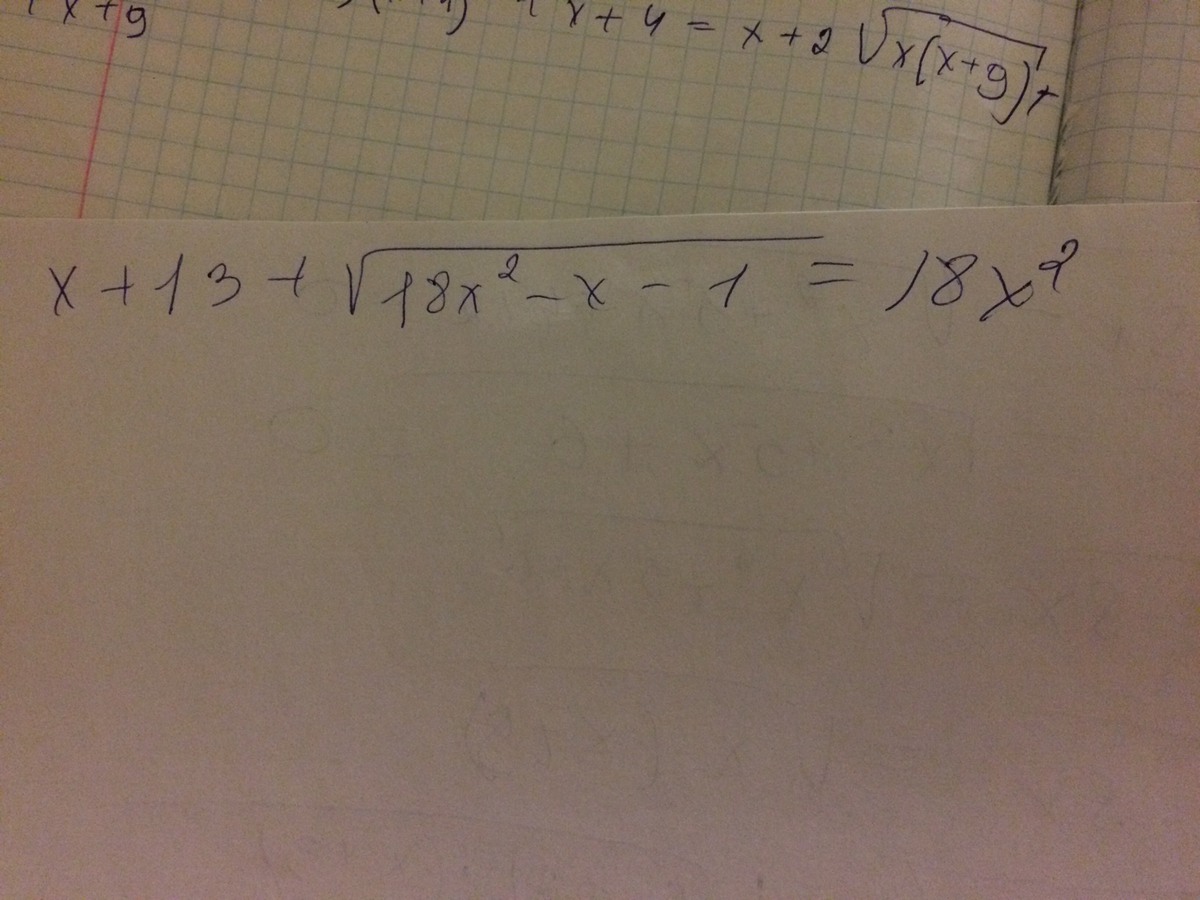 x+9 x+4 = x+2 √x(x+9) +
x+13+√18x²-x-1 = 18x²